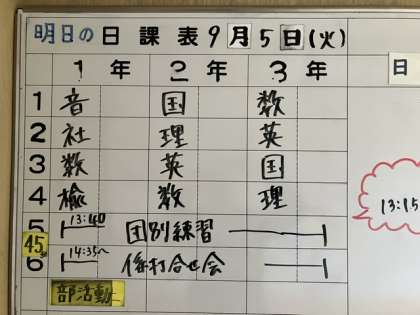 明日の日課表9月5日(火)
日
1年 2年 3年
1 音 国 数
2 社 理 英
3 数 英 国
4 検 数 理
5 13:40 団別練習
45
6 14:35~ 係打合せ会
部活動
13:15